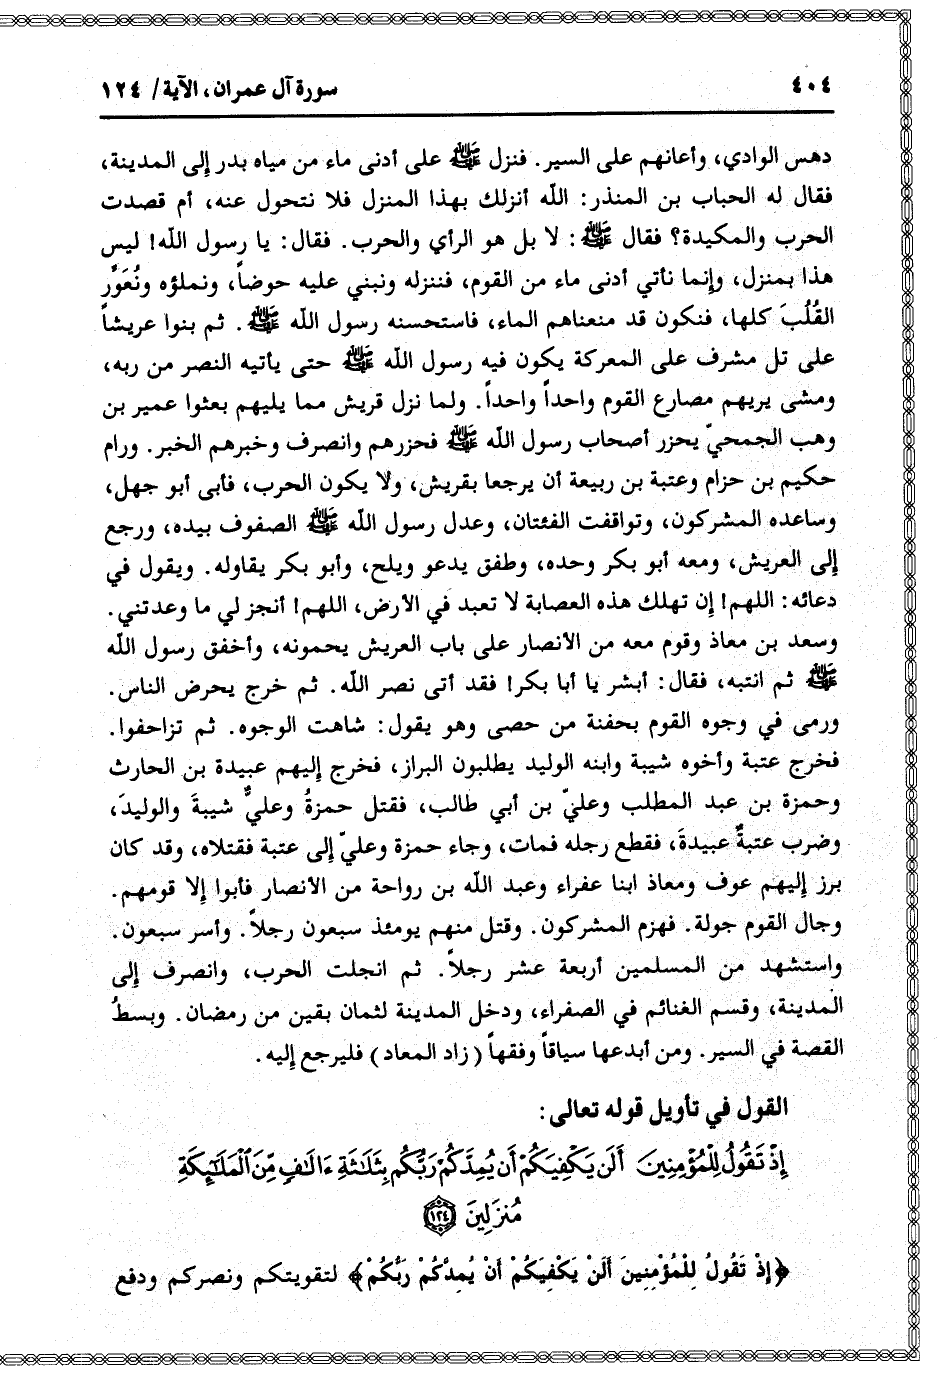 ٤٠٤ سورة آل عمران، الآية/ ١٢٤
دهس الوادي، وأعانهم على السير. فنزل ﷺ على أدنى ماء من مياه بدر إلى المدينة،
فقال له الحباب بن المنذر: الله أنزلك بهذا المنزل فلا نتحول عنه، أم قصدت
الحرب والمكيدة؟ فقال ﷺ: لا بل هو الرأي والحرب. فقال: يا رسول الله! ليس
هذا بمنزل، وإنما نأتي أدنى ماء من القوم، فننزله ونبني عليه حوضاً، ونملؤه ونُعَوِّر
القُلُبَ كلها، فنكون قد منعناهم الماء، فاستحسنه رسول الله ﷺ. ثم بنوا عريشاً
على تل مشرف على المعركة يكون فيه رسول الله ﷺ حتى يأتيه النصر من ربه،
ومشى يريهم مصارع القوم واحداً واحداً. ولما نزل قريش مما يليهم بعثوا عمير بن
وهب الجمحيّ يحزر أصحاب رسول الله ﷺ فحزرهم وانصرف وخبرهم الخبر. ورام
حكيم بن حزام وعتبة بن ربيعة أن يرجعا بقريش، ولا يكون الحرب، فأبى أبو جهل،
وساعده المشركون، وتواقفت الفئتان، وعدل رسول الله ﷺ الصفوف بيده، ورجع
إلى العريش، ومعه أبو بكر وحده، وطفق يدعو ويلح، وأبو بكر يقاوله. ويقول في
دعائه: اللهم! إن تهلك هذه العصابة لا تعبد في الأرض، اللهم! أنجز لي ما وعدتني.
وسعد بن معاذ وقوم معه من الأنصار على باب العريش يحمونه، وأخفق رسول الله
ﷺ ثم انتبه، فقال: أبشر يا أبا بكر! فقد أتى نصر الله. ثم خرج يحرض الناس.
ورمى في وجوه القوم بحفنة من حصى وهو يقول: شاهت الوجوه. ثم تزاحفوا.
فخرج عتبة وأخوه شيبة وابنه الوليد يطلبون البراز، فخرج إليهم عبيدة بن الحارث
وحمزة بن عبد المطلب وعليّ بن أبي طالب، فقتل حمزةُ وعليٌّ شيبةَ والوليدَ،
وضرب عتبةُ عبيدةَ، فقطع رجله فمات، وجاء حمزة وعليّ إلى عتبة فقتلاه، وقد كان
برز إليهم عوف ومعاذ ابنا عفراء وعبد الله بن رواحة من الأنصار فأبوا إلا قومهم.
وجال القوم جولة. فهزم المشركون. وقتل منهم يومئذ سبعون رجلاً. وأسر سبعون.
واستشهد من المسلمين أربعة عشر رجلاً. ثم انجلت الحرب، وانصرف إلى
المدينة، وقسم الغنائم في الصفراء، ودخل المدينة لثمان بقين من رمضان. وبسطُ
القصة في السير. ومن أبدعها سياقاً وفقهاً (زاد المعاد) فليرجع إليه.
القول في تأويل قوله تعالى:
إِذْ تَقُولُ لِلْمُؤْمِنِينَ أَلَن يَكْفِيَكُمْ أَن يُمِدَّكُمْ رَبُّكُم بِثَلَٰثَةِ ءَالَٰفٍ مِّنَ ٱلْمَلَٰٓئِكَةِ
مُنزَلِينَ ١٢٤
﴿إِذْ تَقُولُ لِلْمُؤْمِنِينَ أَلَنْ يَكْفِيَكُمْ أَنْ يُمِدَّكُمْ رَبُّكُمْ﴾ لتقويتكم ونصركم ودفع